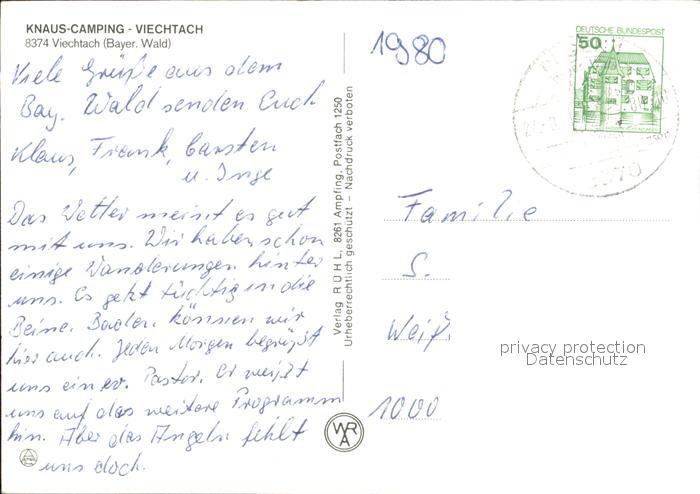 KNAUS-CAMPING - VIECHTACH
8374 Viechtach (Bayer. Wald)
Viele Grüße aus dem
Bay. Wald senden Euch
Klaus, Frank, Carsten
u. Inge
Das Wetter meint es gut
mit uns. Wir haben schon
einige Wanderungen hinter
uns. Es geht tüchtig in die
Beine. Baden können wir
hier auch. Jeden Morgen begrüßt
uns ein ev. Pastor. Er weißt
uns auf das weitere Programm
hin. Aber das Angeln fehlt
uns doch.
Verlag RÜHL, 8261 Ampfing, Postfach 1250
Urheberrechtlich geschützt - Nachdruck verboten
WRA
1980
DEUTSCHE BUNDESPOST
50
Familie
S.
Weiß.
1000
privacy protection
Datenschutz